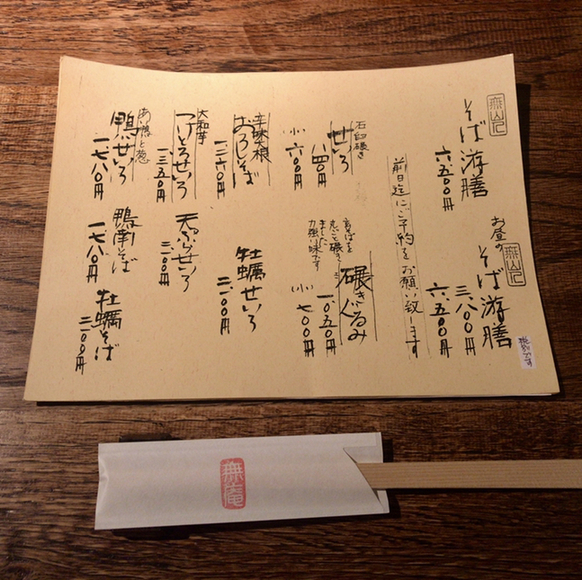 無庵
そば游膳
六、五〇〇円
お昼の
無庵
そば游膳
三、八〇〇円
六、五〇〇円
税別です
前日迄にご予約をお願い致します
石臼碾き
せいろ
八四〇円
小 六〇〇円
碾きぐるみ
一、〇五〇円
(小) 七〇〇円
辛味大根
おろしそば
牡蠣せいろ
二、一〇〇円
大和芋
つけとろせいろ
一、三五〇円
天ぷらせいろ
あい鴨と葱
鴨せいろ
一、七八〇円
鴨南そば
一、七八〇円
牡蠣そば
二、一〇〇円
無庵